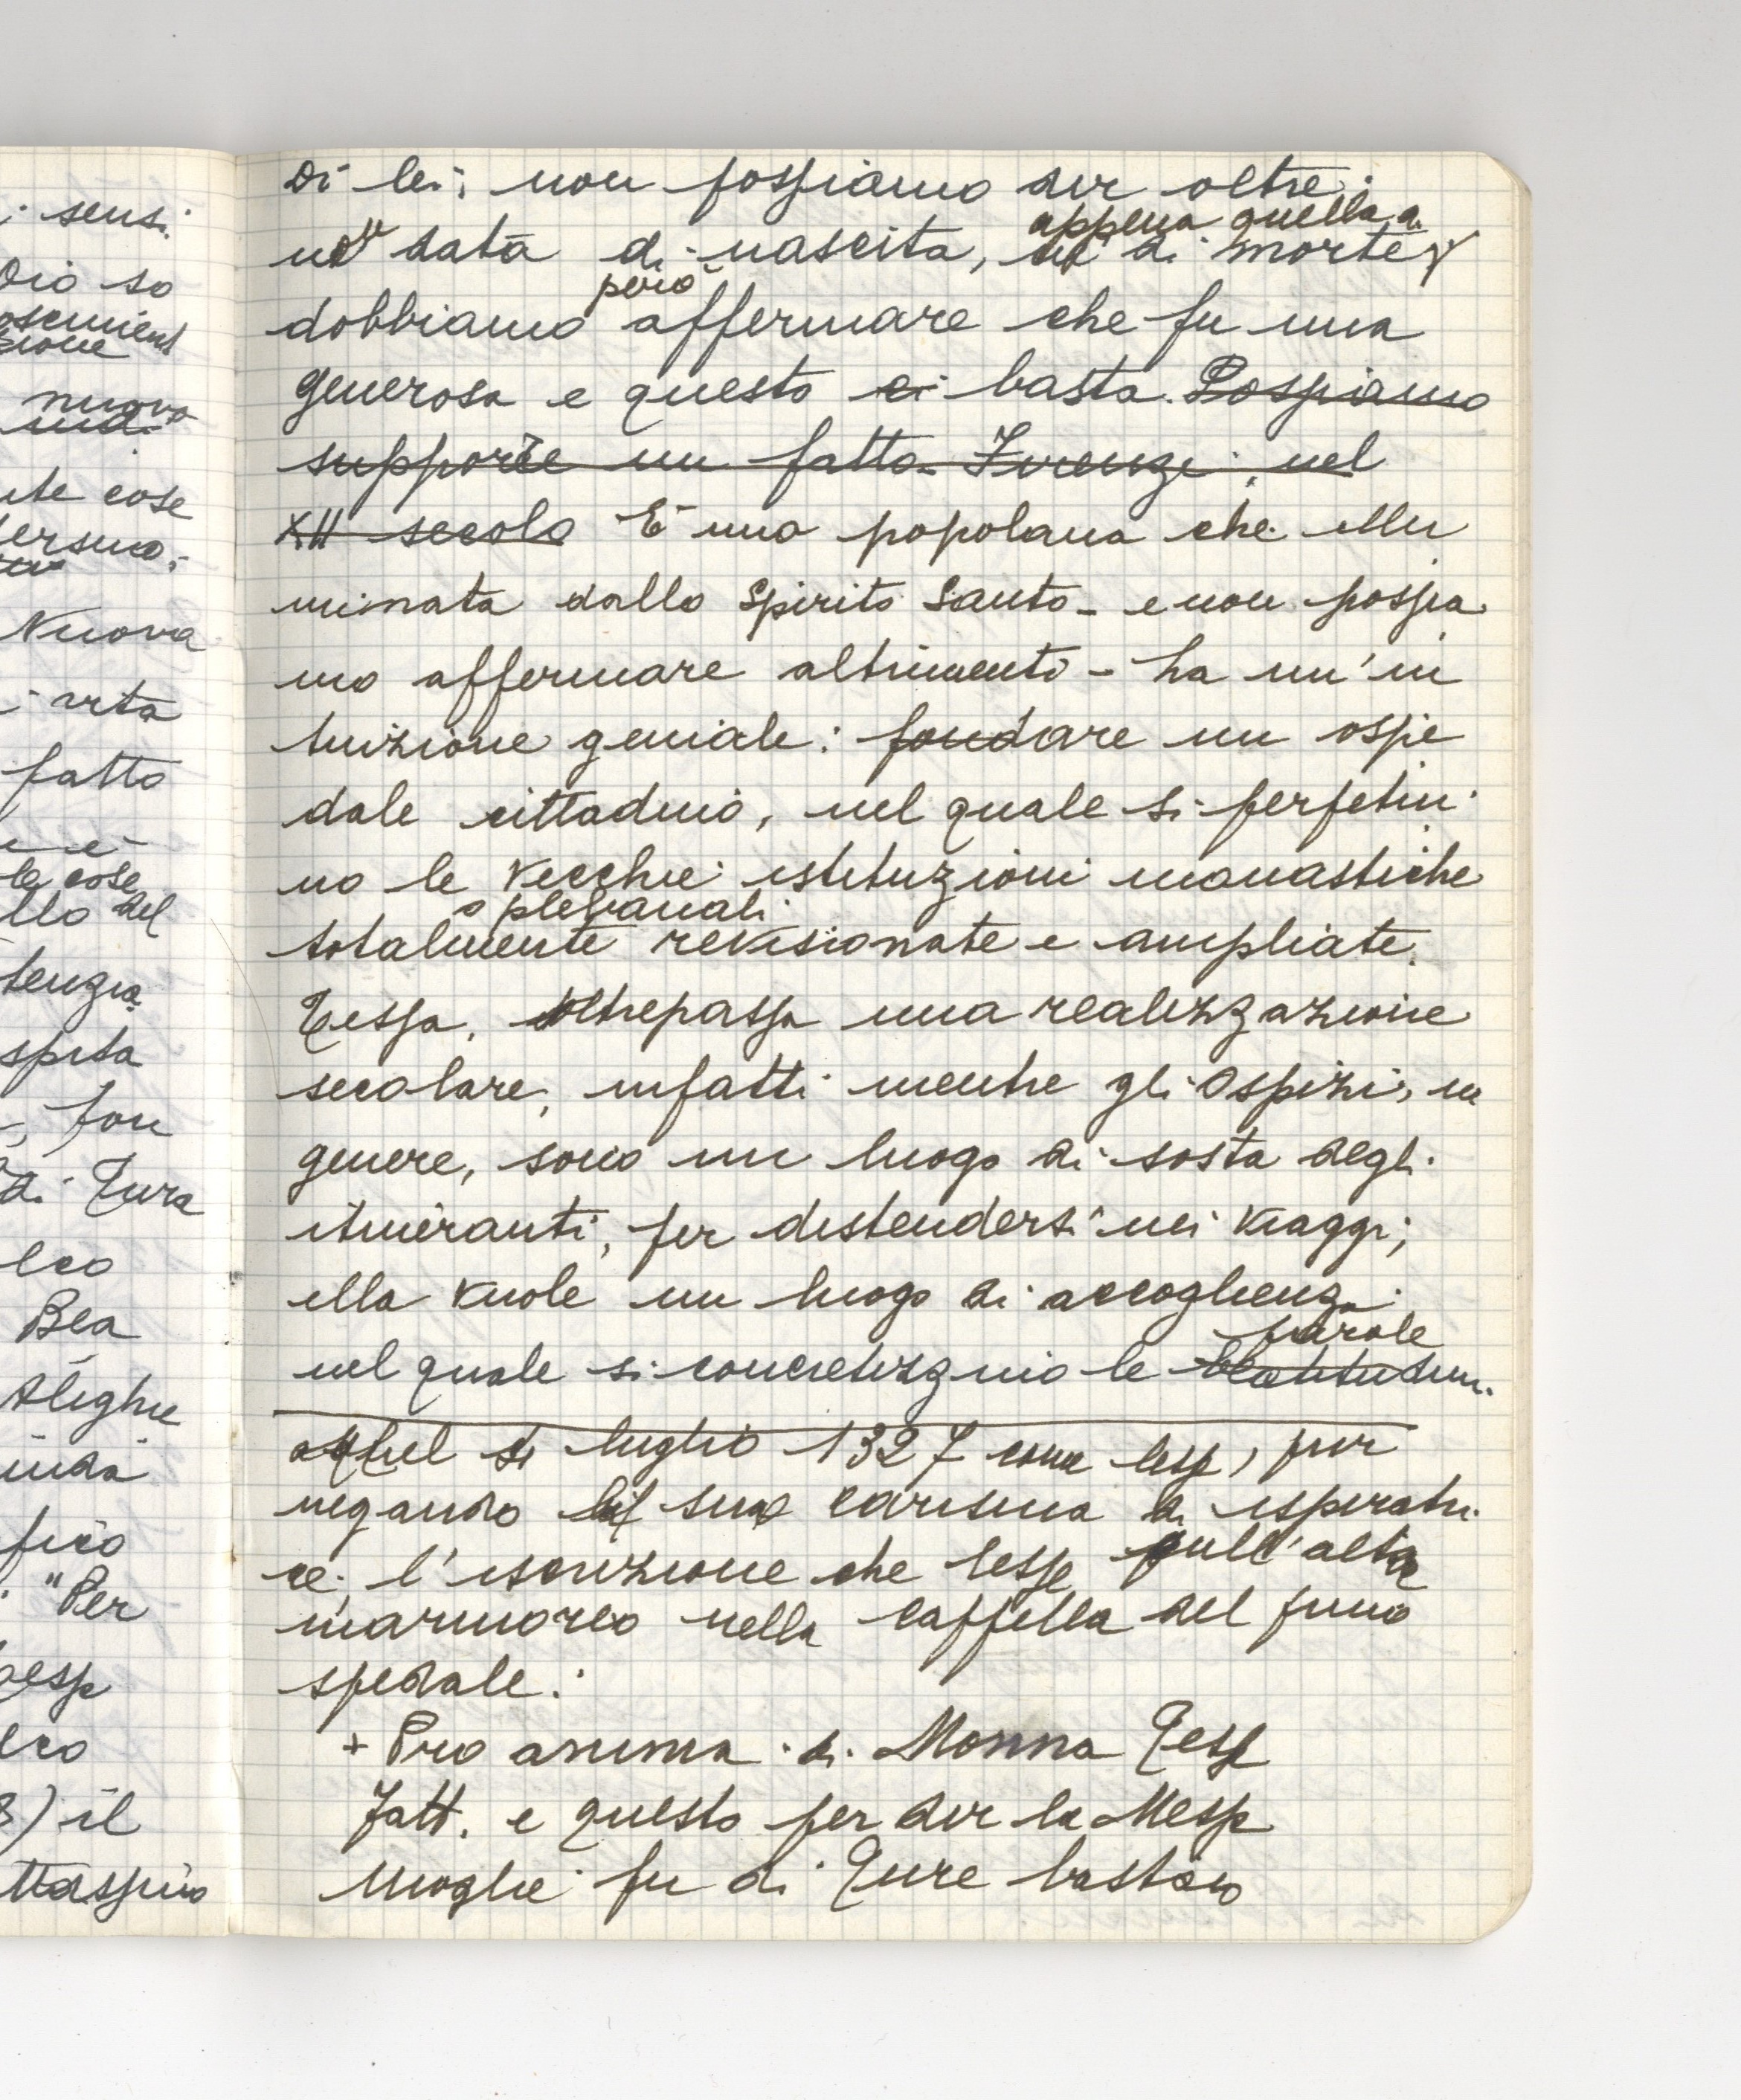 i sensi
Dio so
nuova
cose
Nuova
vita
fatto
le cose
llo del
tenzia
spita
fon
di Tura
leo
Bea
Alighie
fico
"Per
Tessa
leo
8) il
di lei, non possiamo dir oltre:
né data di nascita, né di morte
appena quella a.
però
dobbiamo affermare che fu una
generosa e questo ci basta. Possiamo
supporre un fatto. Firenze, nel
XII secolo È una popolana che illu
minata dallo Spirito Santo - e non possia
mo affermare altrimenti - ha un'in
tuizione geniale: fondare un ospe
dale cittadino, nel quale si perpetui
no le vecchie istituzioni monastiche
o plebanali
totalmente revisionate e ampliate.
Tessa, oltrepassa una realizzazione
secolare, infatti mentre gli Ospizi, in
genere, sono un luogo di sosta degli
itineranti, per distendersi nei viaggi;
ella vuole un luogo di accoglienza
parole
nel quale si concretizzino le beatitudini
luglio 1327 come Tessa, pur
negando il suo carisma di ispiratri
ce, l'iscrizione che lesse sull'altare
marmoreo nella cappella del primo
spedale:
+ Pro anima di Monna Tessa
Fatt. e questo per dir la Messa
Moglie fu di Ture bastaio